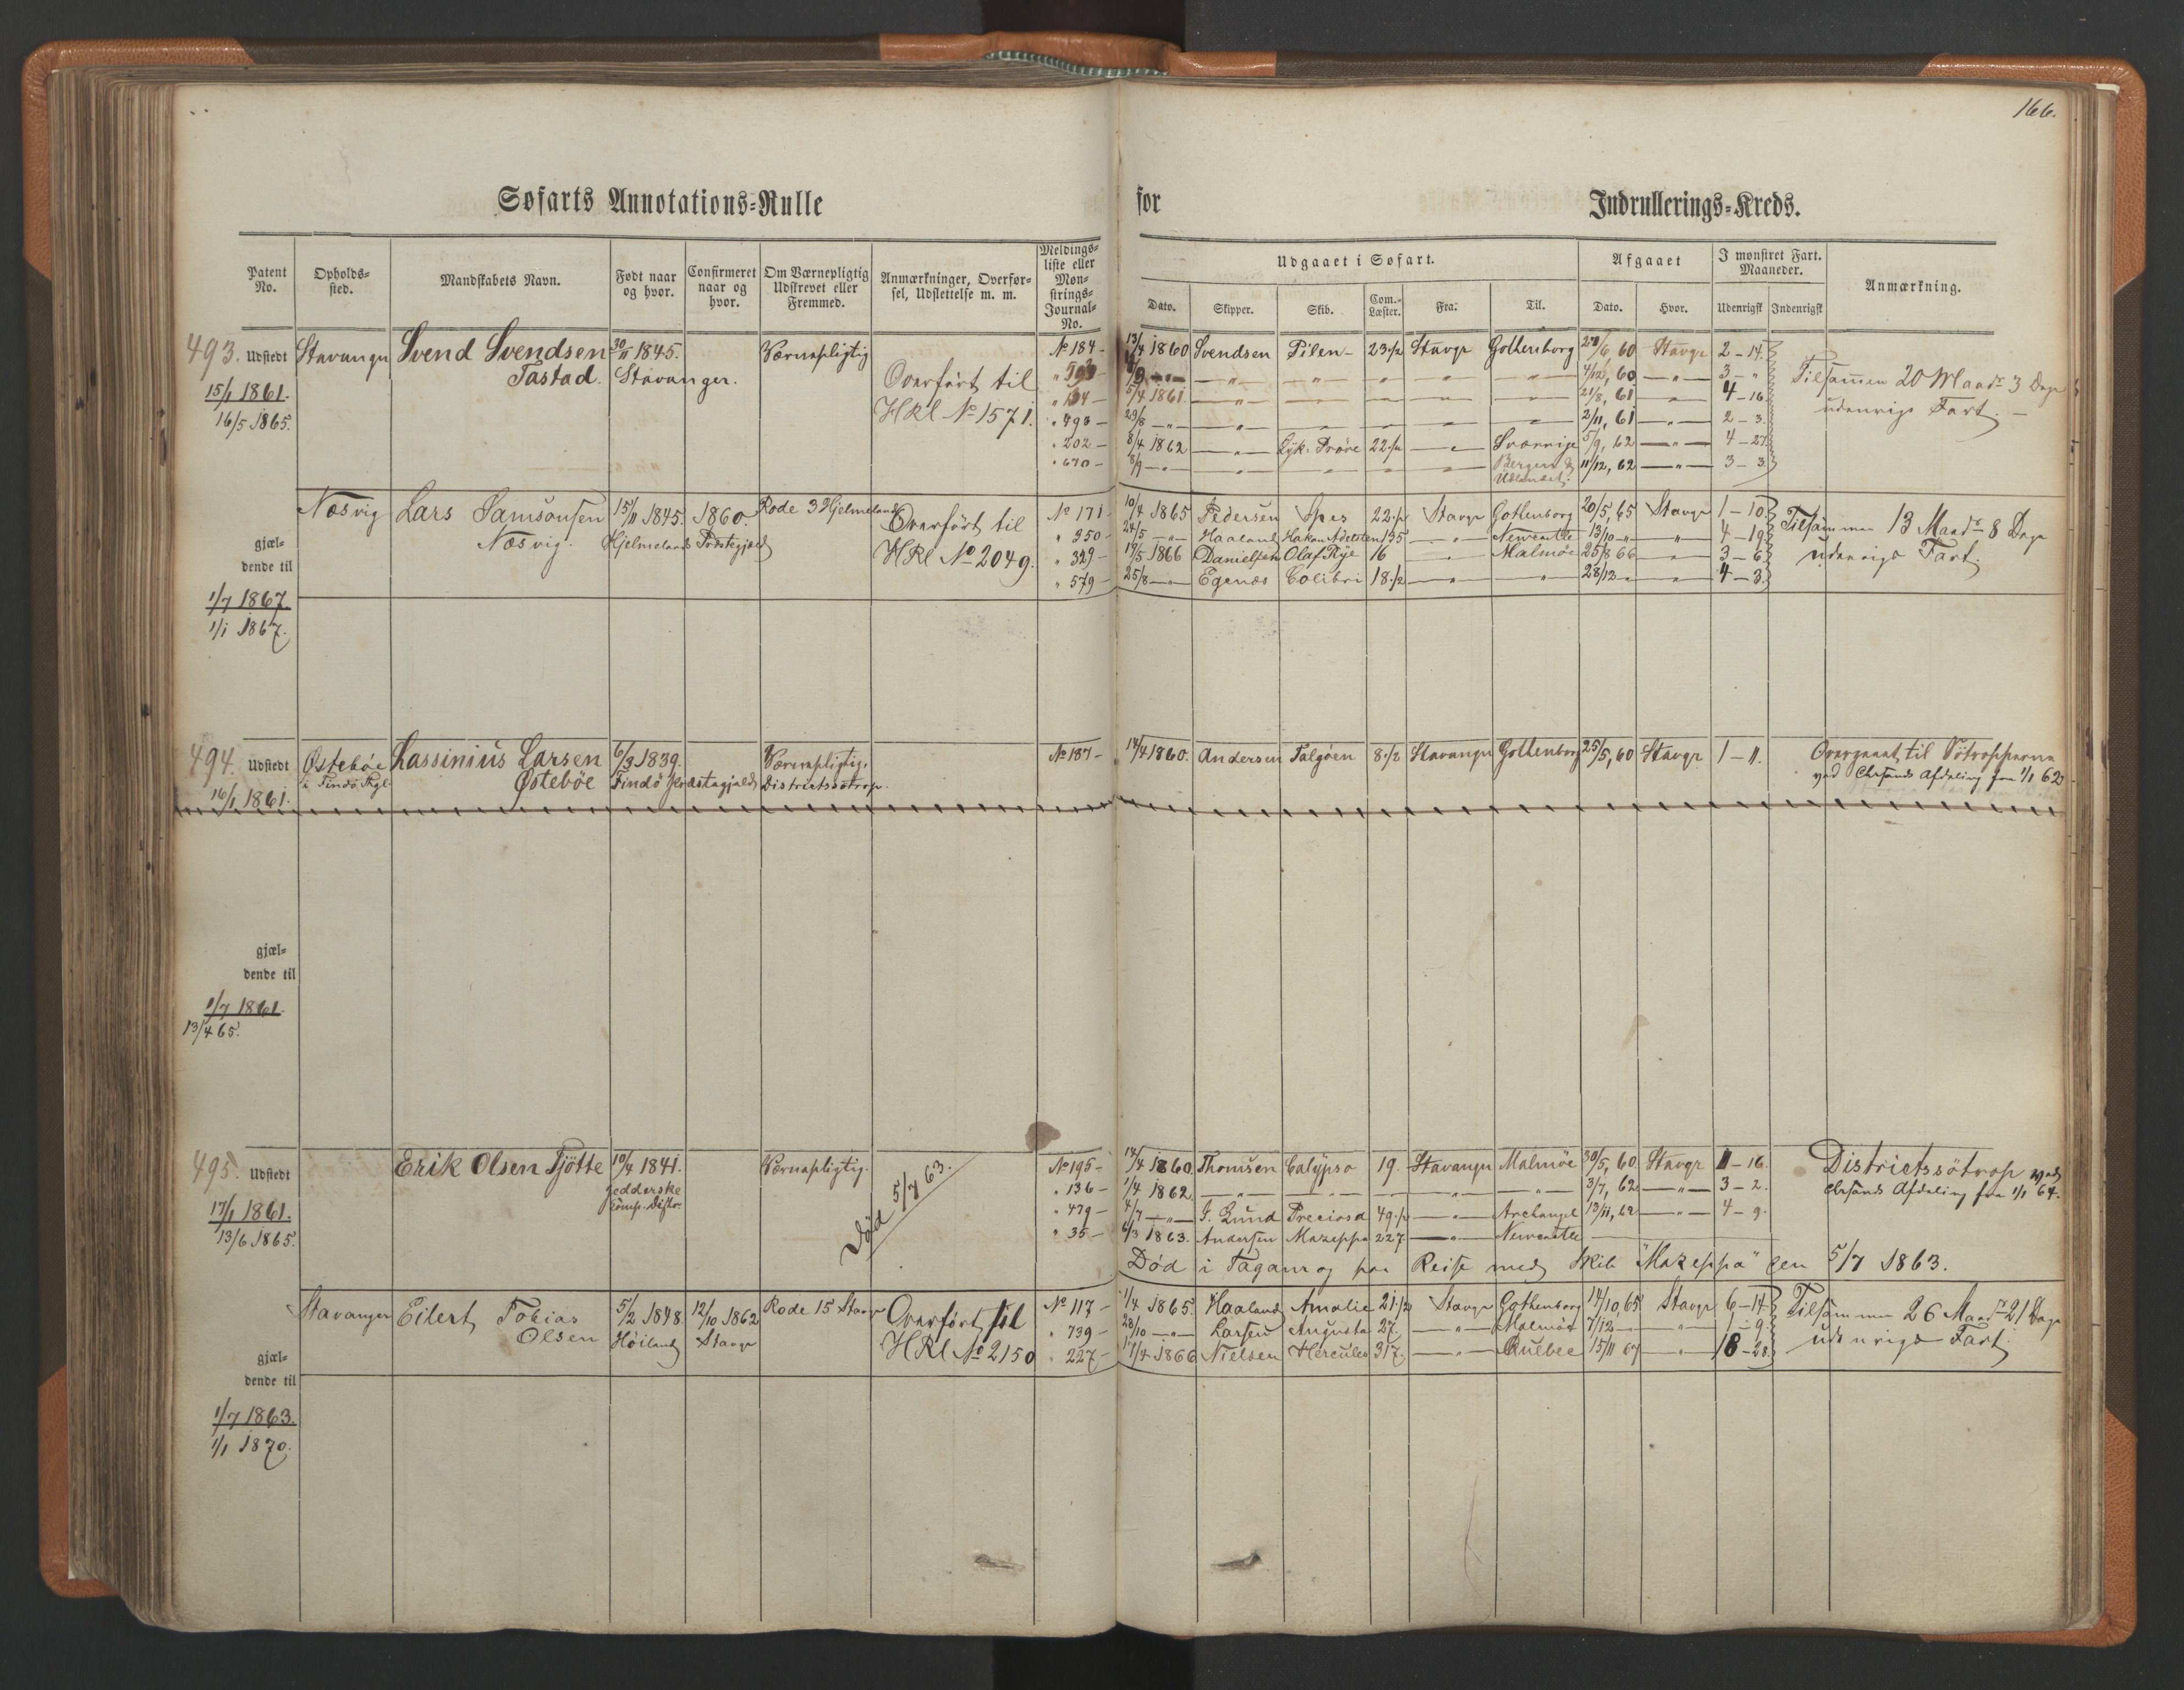 166.
Søfarts Annotations=Rulle for Indrullerings=Kreds.
Patent No. Opholds= sted. Mandskabets Navn. Født naar og hvor. Confirmeret naar og hvor. Om Værnepligtig Udskrevet eller Fremmed. Anmærkninger, Overfør= sel, Udslettelse m. m. Meldings= liste eller Møn= strings= Journal= No.
Udgaaet i Søfart. Afgaaet I mønstret Fart. Maaneder. Anmærkning.
Dato. Skipper. Skib. Com.= Læster. Fra. Til. Dato. Hvor. Udenrigsk Indenrigsk
493. Udstedt Stavanger Svend Svendsen 30/11 1845. Værnepligtig No 184 - 13/4 1860 Svendsen Pilen - 23 1/2 Stavgr Gothenborg 28/6, 60 Stavgr 2 - 14.
15/1 1861. Tastad. Stavanger. Overført til 4/12, 60 - " - 3 - " Tilsammen 20 Maadr 3 Dage
16/5 1865. HRl No 1571. " 104 - 5/4 1861 - " - 21/8, 61 4 - 16. udenrigs Fart. -
" 493 - 29/8 - " - 2/11, 61 - " - 2 - 3.
" 202 - 8/4 1862 - " - Lyk. Prøve 22 1/2 Sverrige 5/9, 62 - " - 4 - 27.
" 670 - 8/9 - " - Bergen & 11/12, 62 - " - 3 - 3.
Udlandet.
Næsvig Lars Samsonsen 15/11 1845. 1860. Rode 3 Hjelmeland Overført til No 171 - 10/4 1865 Pedersen Spes 22 1/2 Stavgr Gothenborg 20/5, 65 Stavgr 1 - 10.
gjæl= Næsvig. Hjelmelands Præstegjæld HRl No 2049. " 350 - 24/5 - " - Haaland Hakon Adelsten 135 - " - Newcastle 13/10 - " - 4 - 19. Tilsammen 13 Maadr 8 Dage
dende til " 329 - 19/5 1866 Danielsen Olaf Rye 16 Malmøe 25/8 66 3 - 6. udenrigs Fart.
" 579 - 25/8 - " - Egenæs Colibri 18 1/2 28/12 4 - 3.
1/7 1867.
1/1 1867.
494. Udstedt Østebøe Lassinius Larsen 6/3 1839. Værnepligtig. No 187 - 14/4 1860. Andersen Talgøen 8 1/2 Stavanger Gothenborg 25/5, 60 Stavgr 1 - 11. Overgaaet til Søtropperne
16/1 1861. i Findø Pgl. Østebøe Findø Præstegjæld Districtssøtrop. ved Chrsands Afdeling fra 1/1 62
gjæl=
dende til
1/7 1861.
13/4 65.
495. Udstedt Erik Olsen Tjøtte 10/4 1841. Værnepligtig. No 195 - 14/4 1860. Thomsen Calypso 19. Stavanger Malmøe 30/5, 60. Stavgr 1 - 16. Districtssøtrop ved
17/1 1861. Jedderske Død 5/7 63. " 136 - 1/4 1862. - " - 3/7, 62 - " - 3 - 2. Chrsands Afdeling fra 1/1 64.
13/6 1865. Komp. Distr. " 479 - 4/7 - " - J. Lund Preciosa 49 1/2 - " - Archangel 13/11, 62 - " - 4 - 9.
" 35 - 6/3 1863. Andersen Mazeppa 227. - " - Newcastle
Død i Taganrog paa Reise med Skib "Mazeppa" den 5/7 1863.
Stavanger Eilert Tobias 5/2 1848 12/10 1862 Rode 15 Stavgr Overført til No 117 - 1/4 1865. Haaland Amalie 21 1/2 Stavgr Gothenborg 14/10, 65 Stavgr 6 - 14. Tilsammen 26 Maadr 21 Dage
Olsen Høiland Stavgr HRl No 2150 " 739 - 28/10 - " - Larsen Augusta 27. - " - Malmøe 7/12 1 - 9. udenrigs Fart.
gjæl= " 227 - 17/4 1866 Nielsen Hercules 317. - " - Quebec 15/11 67 18 - 28.
dende til
1/7 1863.
1/1 1870.